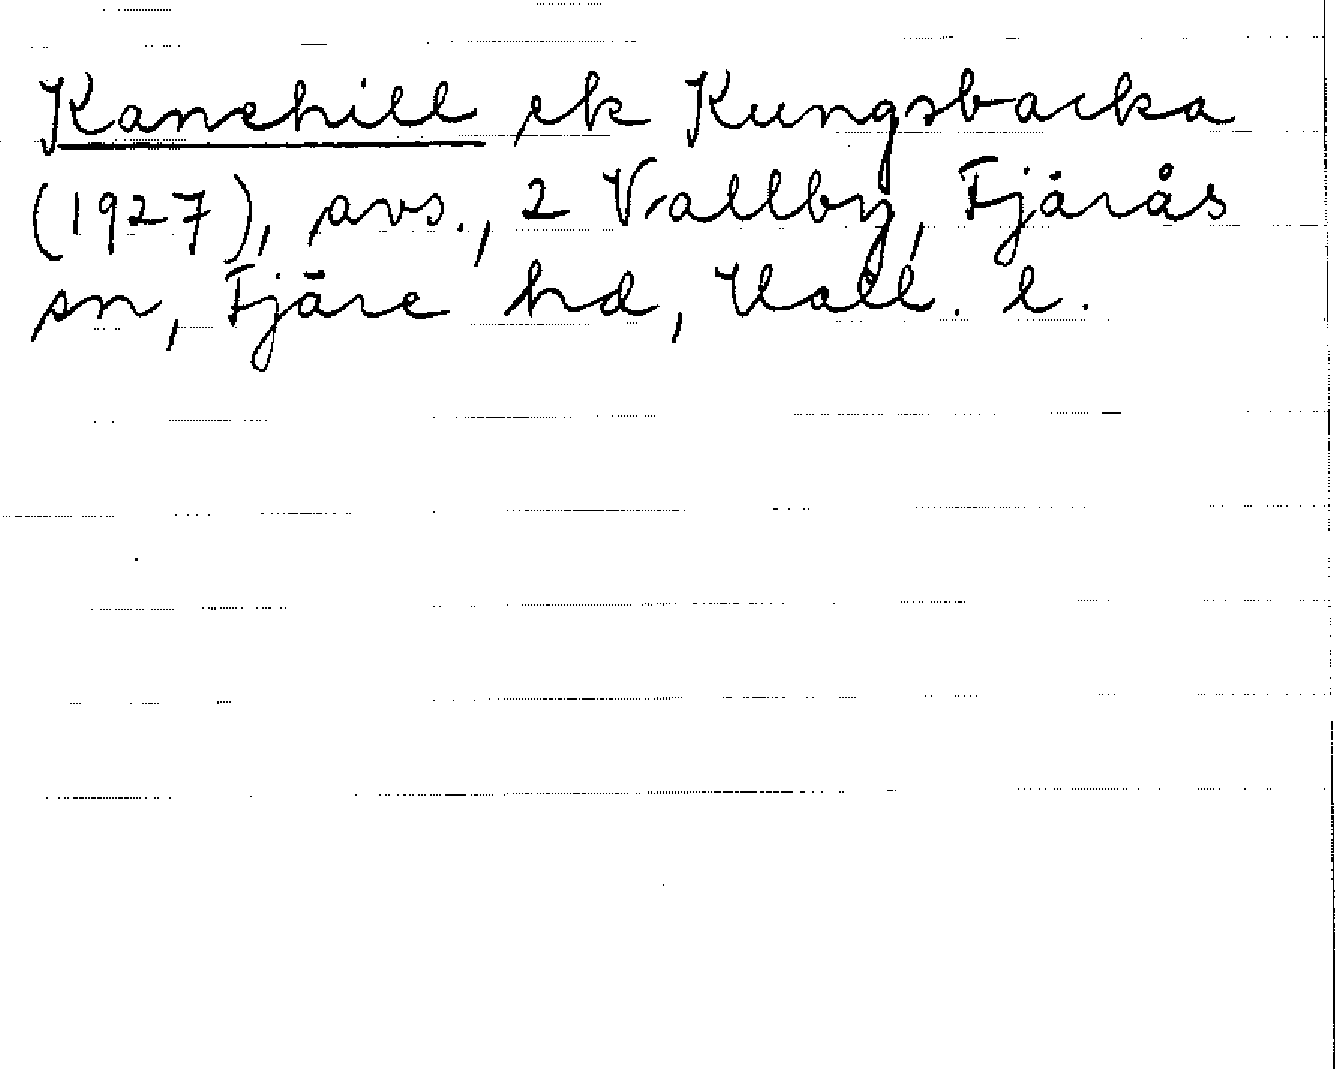 Kanehill ek Kungsbacka
(1927), avs., 2 Vallby, Fjärås
sn, Fjäre hd, Hall. l.